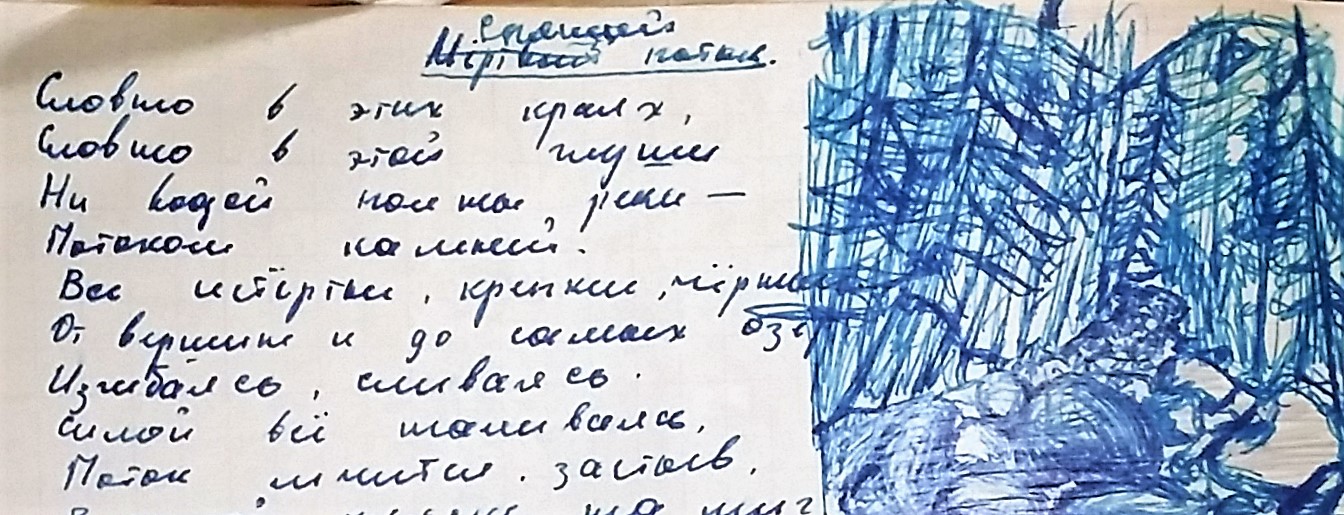 Спящий
Мёртвый поток.
Словно в этих краях,
Словно в этой глуши
Ни водой полны реки —
Потоком камней.
Все истёрты, крепки, чёрны
От вершины и до самых озёр
Изгибаясь, сливаясь.
Силой всё наливаясь,
Поток мчится. застыв.
на миг